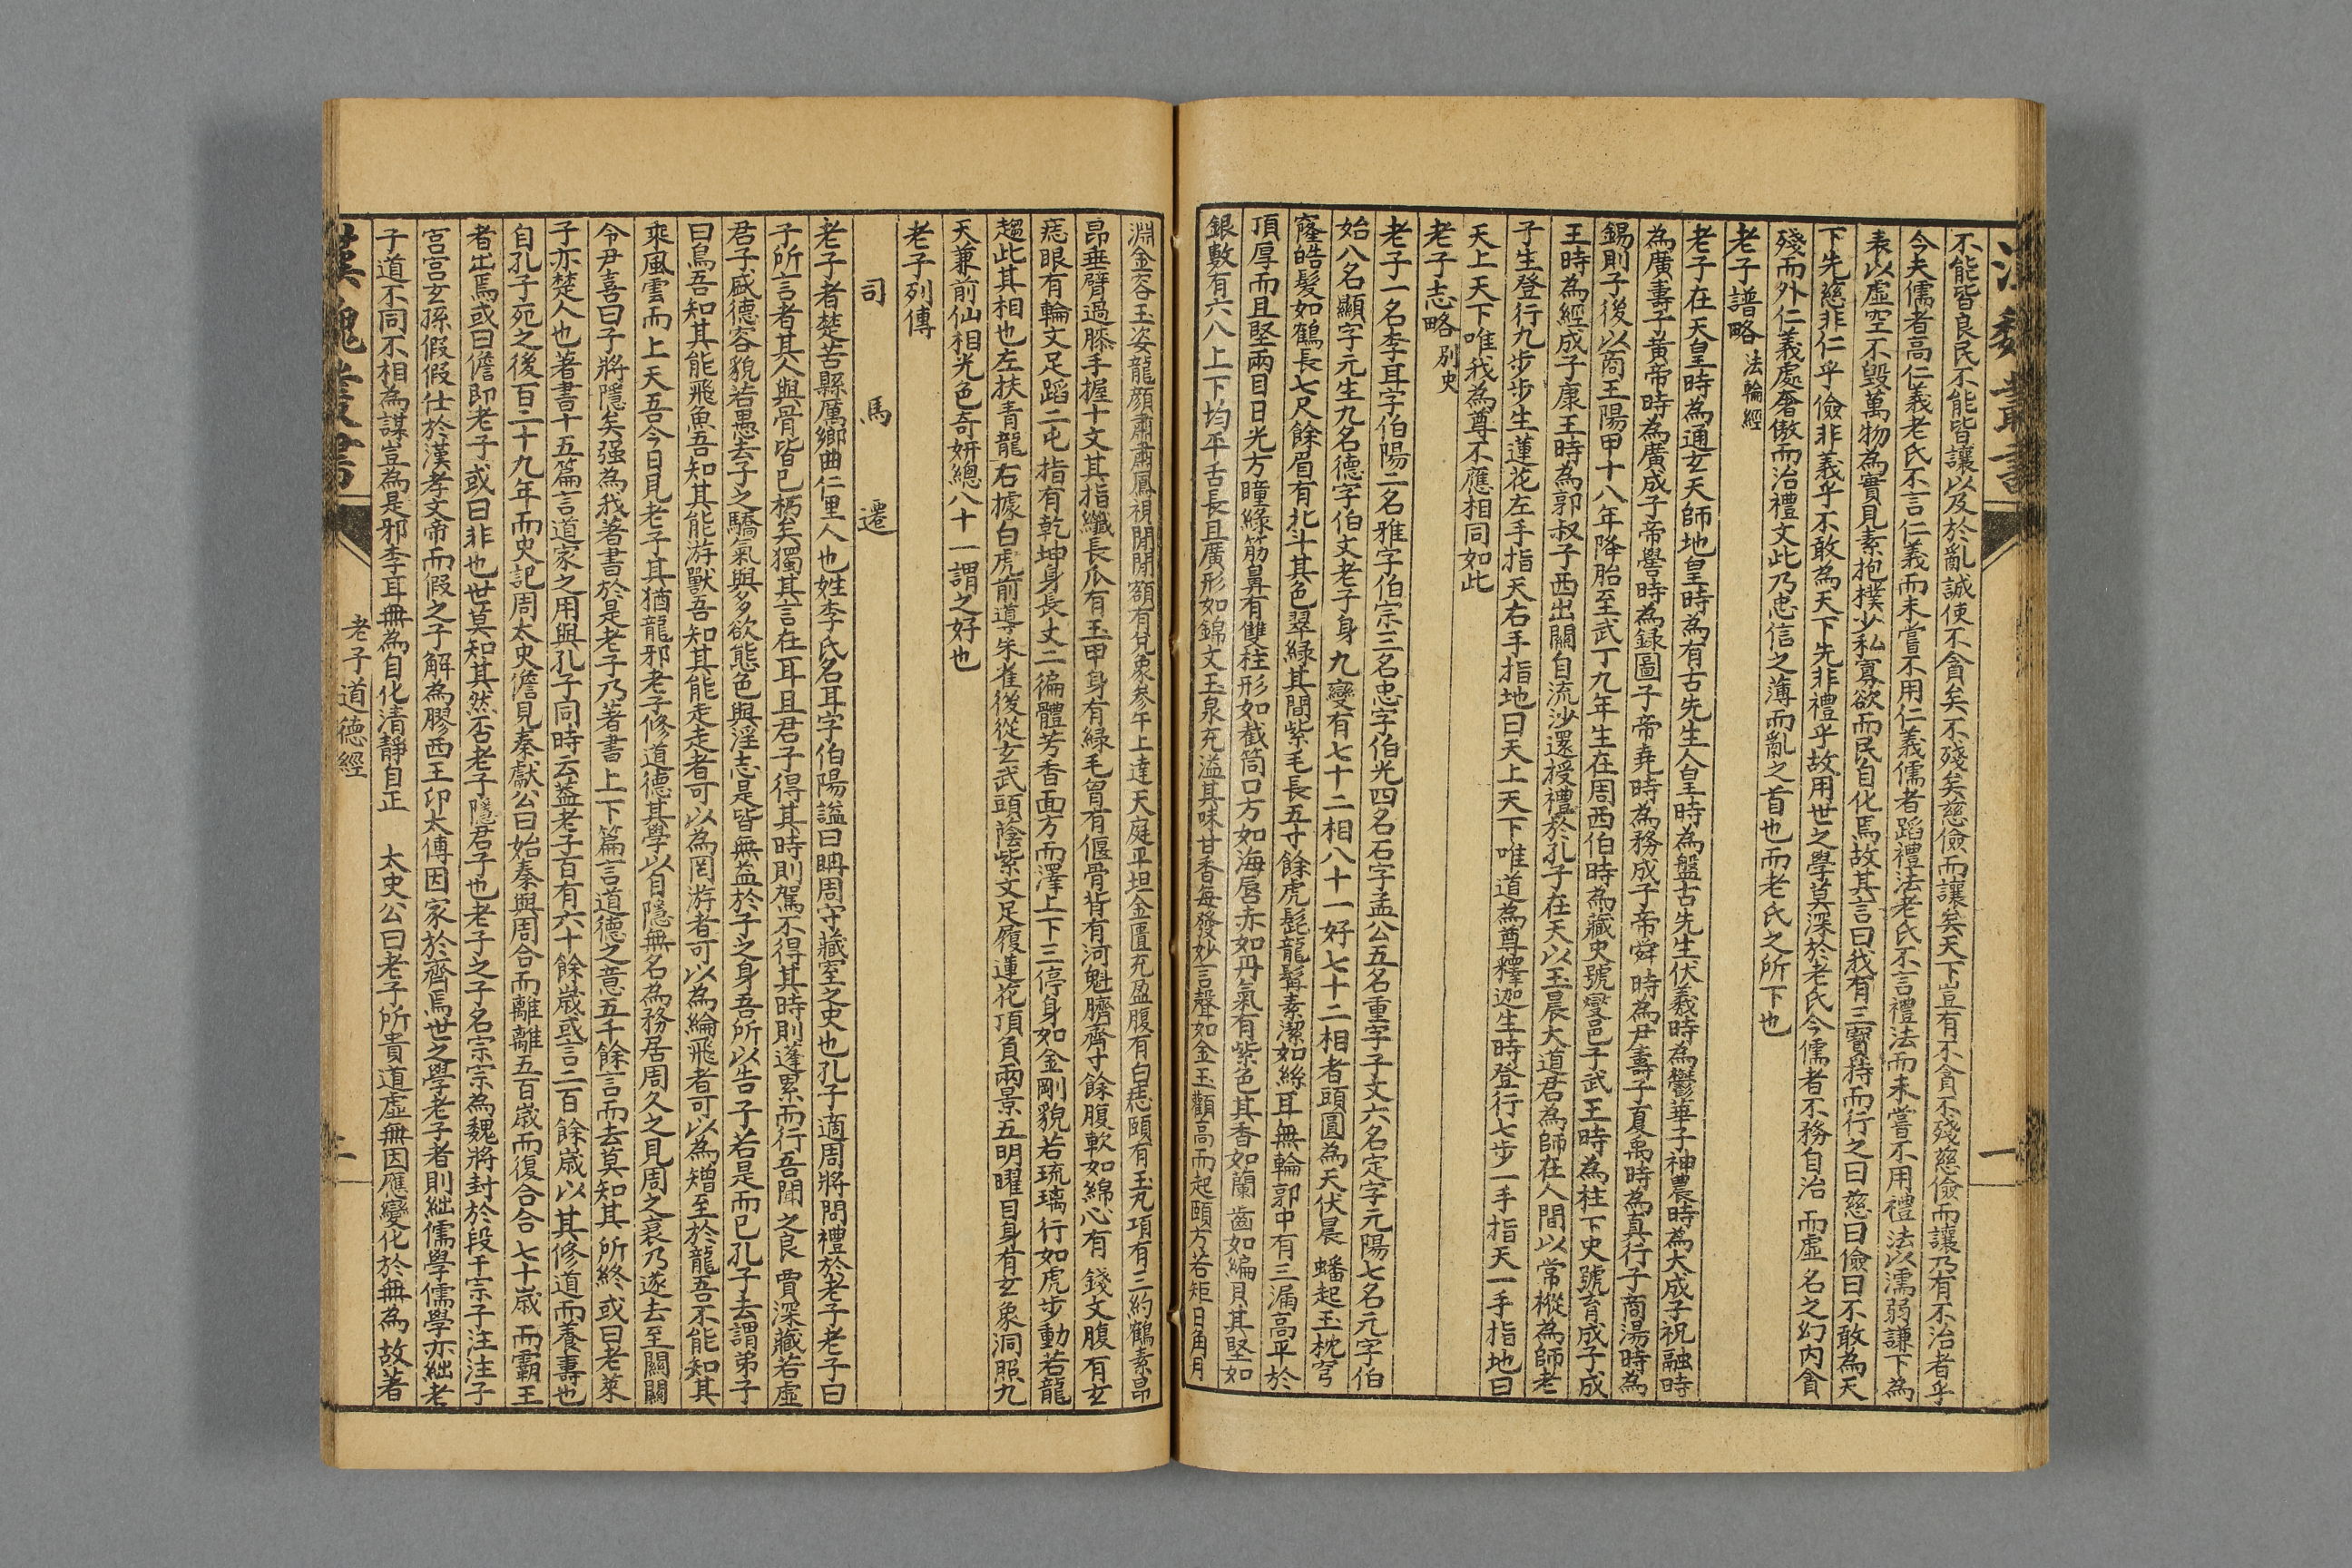 漢魏叢書
一
不能皆良民不能皆讓以及於亂誠使不貪矣不殘矣慈儉而讓矣天下豈有不貪不殘慈儉而讓乃有不治者乎
今夫儒者高仁義老氏不言仁義而未嘗不用仁義儒者蹈禮法老氏不言禮法而未嘗不用禮法以濡弱謙下為
表以虛空不毀萬物為實見素抱樸少私寡欲而民自化焉故其言曰我有三寶持而行之曰慈曰儉曰不敢為天
下先慈非仁乎儉非義乎不敢為天下先非禮乎故用世之學莫深於老氏今儒者不務自治而虛名之幻內貪
殘而外仁義處奢傲而治禮文此乃忠信之薄而亂之首也而老氏之所下也
老子譜略 法輪經
老子在天皇時為通玄天師地皇時為有古先生人皇時為盤古先生伏羲時為鬱華子神農時為大成子祝融時
為廣壽子黃帝時為廣成子帝嚳時為録圖子帝堯時為務成子帝舜時為尹壽子夏禹時為真行子商湯時為
錫則子後以商王陽甲十八年降胎至武丁九年生在周西伯時為藏史號燮邑子武王時為柱下史號育成子成
王時為經成子康王時為郭叔子西出關自流沙還授禮於孔子在天以玉晨大道君為師在人間以常樅為師老
子生登行九步步生蓮花左手指天右手指地曰天上天下唯道為尊釋迦生時登行七步一手指天一手指地曰
天上天下唯我為尊不應相同如此
老子志略 別史
老子一名李耳字伯陽二名雅字伯宗三名忠字伯光四名石字孟公五名重字子文六名定字元陽七名元字伯
始八名顯字元生九名德字伯文老子身九變有七十二相八十一好七十二相者頭圓為天伏晨蟠起玉枕穹
窿皓髮如鶴長七尺餘眉有北斗其色翠緑其間紫毛長五寸餘虎髭龍髯素潔如絲耳無輪郭中有三漏高平於
頂厚而且堅兩目日光方瞳緑筋鼻有雙柱形如截筒口方如海唇赤如丹氣有紫色其香如蘭齒如編貝其堅如
銀數有六八上下均平舌長且廣形如錦文玉泉充溢其味甘香每發妙言聲如金玉顴高而起頤方若矩日角月
淵金容玉姿龍顏肅肅鳳視閑閑額有兌象參午上達天庭平坦金匱充盈腹有白痣頤有玉丸項有三約鶴素昂
昂垂臂過膝手握十文其指纖長爪有玉甲身有緑毛胷有偃骨背有河魁臍齊寸餘腹軟如綿心有錢文腹有玄
痣眼有輪文足蹈二屯指有乾坤身長丈二徧體芳香面方而澤上下三停身如金剛貌若琉璃行如虎步動若龍
趨此其相也左扶青龍右據白虎前導朱雀後從玄武頭蔭紫文足履蓮花頂負兩景五明曜目身有玄象洞照九
天兼前仙相光色奇妍總八十一謂之好也
老子列傳
司馬遷
老子者楚苦縣厲鄉曲仁里人也姓李氏名耳字伯陽謚曰聃周守藏室之史也孔子適周將問禮於老子老子曰
子所言者其人與骨皆已朽矣獨其言在耳且君子得其時則駕不得其時則蓬累而行吾聞之良賈深藏若虛
君子盛德容貌若愚去子之驕氣與多欲態色與淫志是皆無益於子之身吾所以告子若是而已孔子去謂弟子
曰鳥吾知其能飛魚吾知其能游獸吾知其能走走者可以為罔游者可以為綸飛者可以為矰至於龍吾不能知其
乘風雲而上天吾今日見老子其猶龍邪老子修道德其學以自隱無名為務居周久之見周之衰乃遂去至關關
令尹喜曰子將隱矣强為我著書於是老子乃著書上下篇言道德之意五千餘言而去莫知其所終或曰老萊
子亦楚人也著書十五篇言道家之用與孔子同時云葢老子百有六十餘歲或言二百餘歲以其修道而養壽也
自孔子死之後百二十九年而史記周太史儋見秦獻公曰始秦與周合而離離五百歲而復合合七十歲而霸王
者出焉或曰儋即老子或曰非也世莫知其然否老子隱君子也老子之子名宗宗為魏將封於段干宗子注注子
宮宮玄孫假假仕於漢孝文帝而假之子解為膠西王卬太傅因家於齊焉世之學老子者則絀儒學儒學亦絀老
子道不同不相為謀豈為是邪李耳無為自化清靜自正 太史公曰老子所貴道虛無因應變化於無為故著
漢魏叢書
老子道德經
二